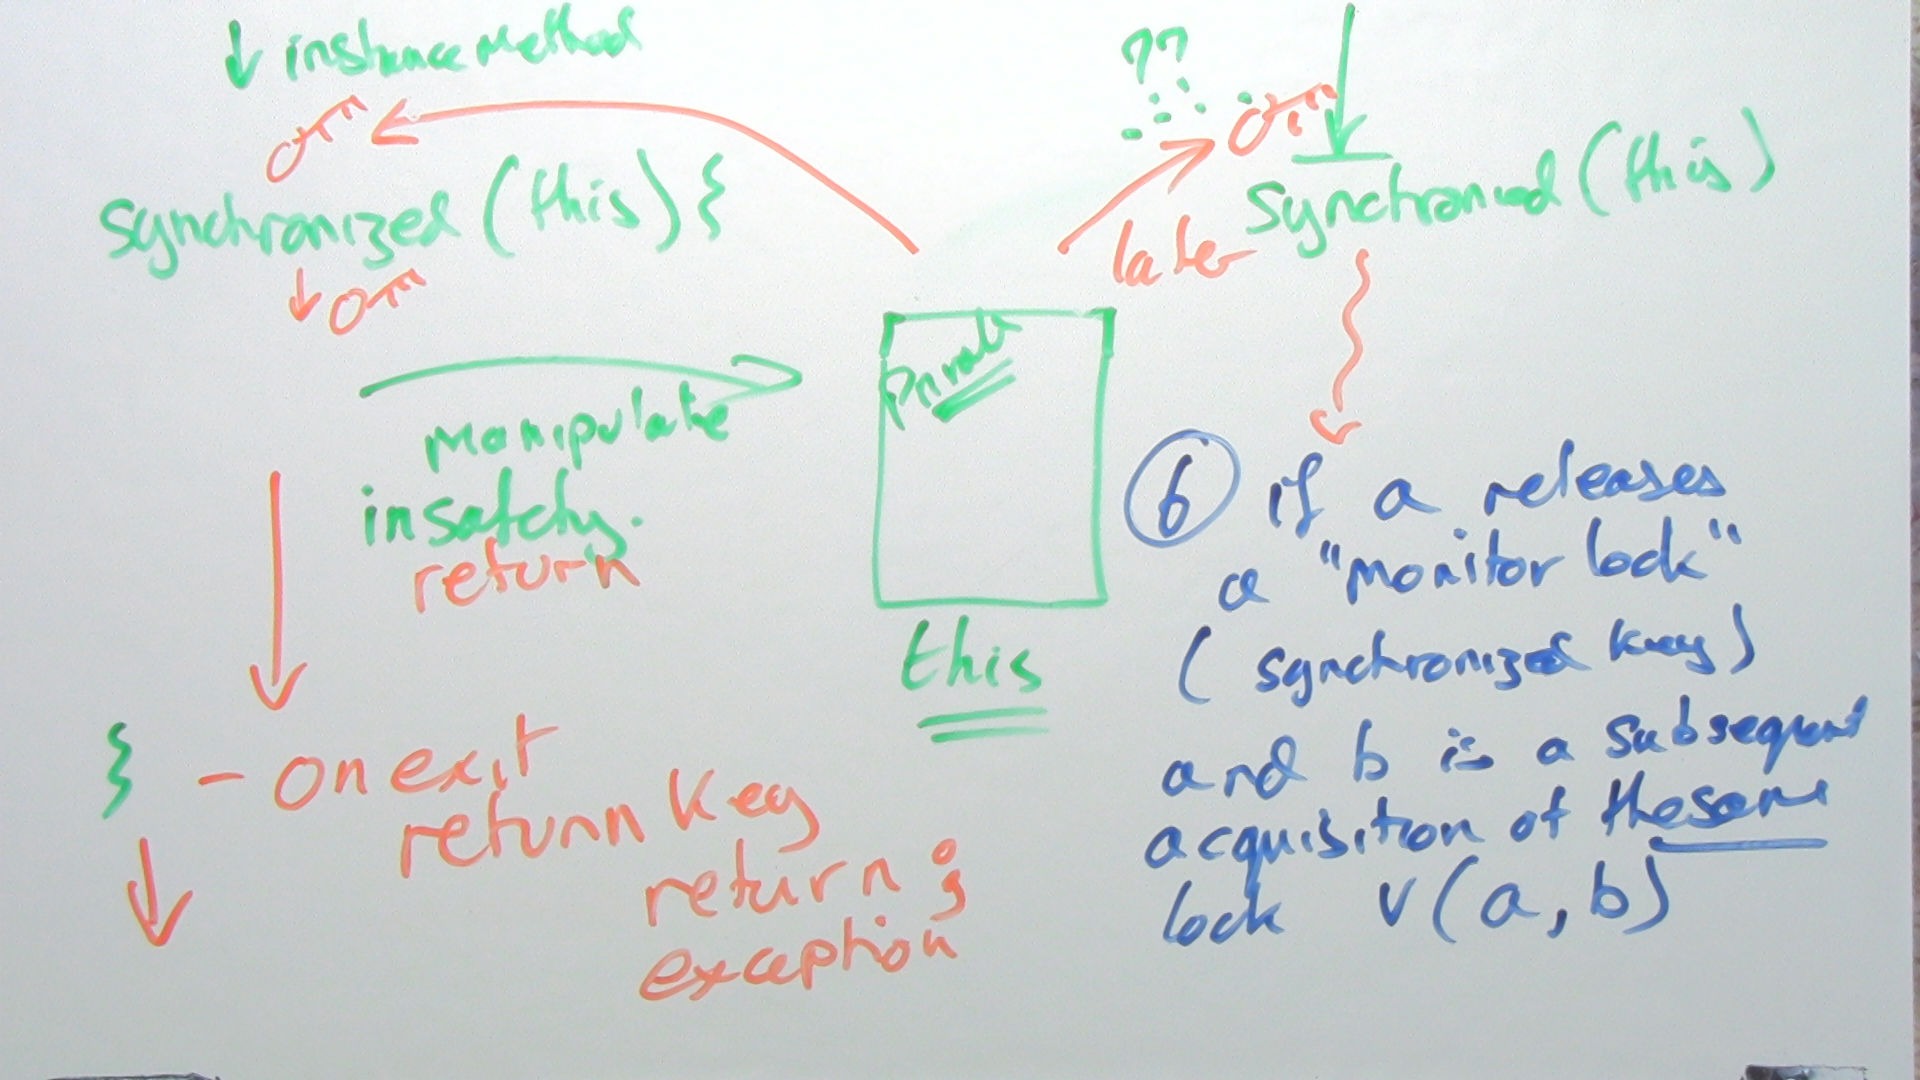 instance Method
synchronized (this) {
Manipulate
in safety.
return
}
- on exit
return key
return ;
exception
private
this
??
later
Synchronied (this)
6 if a releases
a "monitor lock"
( synchronized key )
and b is a subsequent
acquisition of the same
lock v(a, b)